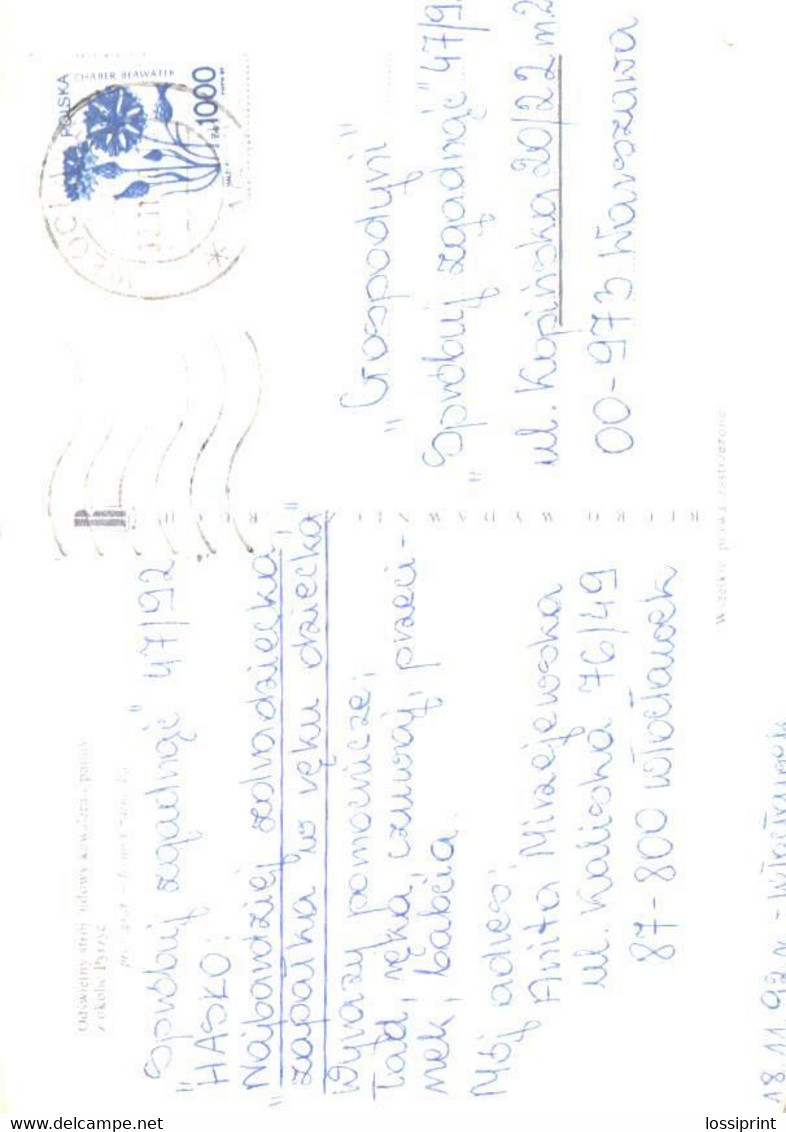 Odświętny strój ludowy kawalera i panny
z okolic Pyrzyc
"Spróbuj zgadnąć" 47/92
"HASŁO:
"Najbardziej szdradziecka
zapałka w ręku dziecka"
Wyrazy pomocnicze:
Tajd, ręka, czuwaj, przeci-
nek, babcia.
Mój adres:
Anita Mirzejewska
ul. Kaliska 76/49
87-800 Włocławek
18.11.92 r. - Włocławek
POLSKA
CHABER BŁAWATEK
zł 1000
"Gospodyni"
"Spróbuj zgadnąć" 47/9
ul. Kopińska 20/22 m.2
00-973 Warszawa
Wszelkie prawa zastrzeżone
www.delcampe.net
lossiprint